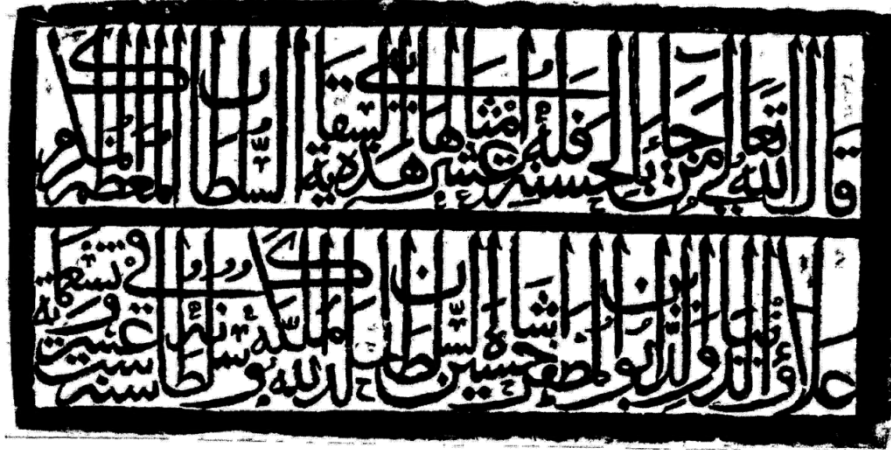 قال الله تعالى من جاء بالحسنة فله عشر امثالها بنى هذه السقاية السلطان المعظم المكرم
علاء الدنيا والدين ابو المظفر حسين شاه السلطان خلد الله ملكه وسلطانه في سنة ست عشرة وتسعمائة